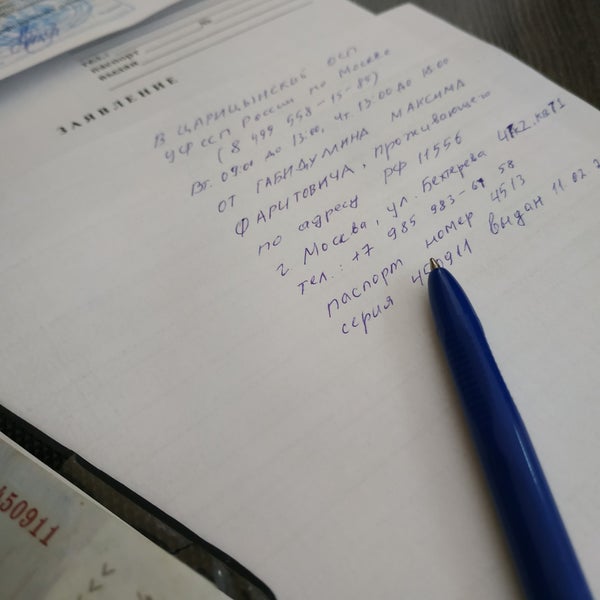 паспорт
выдан
ЗАЯВЛЕНИЕ
В ЦАРИЦЫНСКОЙ ОСП
УФССП России по Москве
(8 499 558-15-85)
Вт. 09.00 до 13.00, Чт. 13:00 до 18:00
ОТ ГАБИДУЛИНА МАКСИМА
ФАРИТОВИЧА, проживающего
по адресу РФ 11556
г Москва, ул. Бехтерева
тел.: +7 985 983-67 58
паспорт номер 4513
серия 450911 выдан 11.02
450911